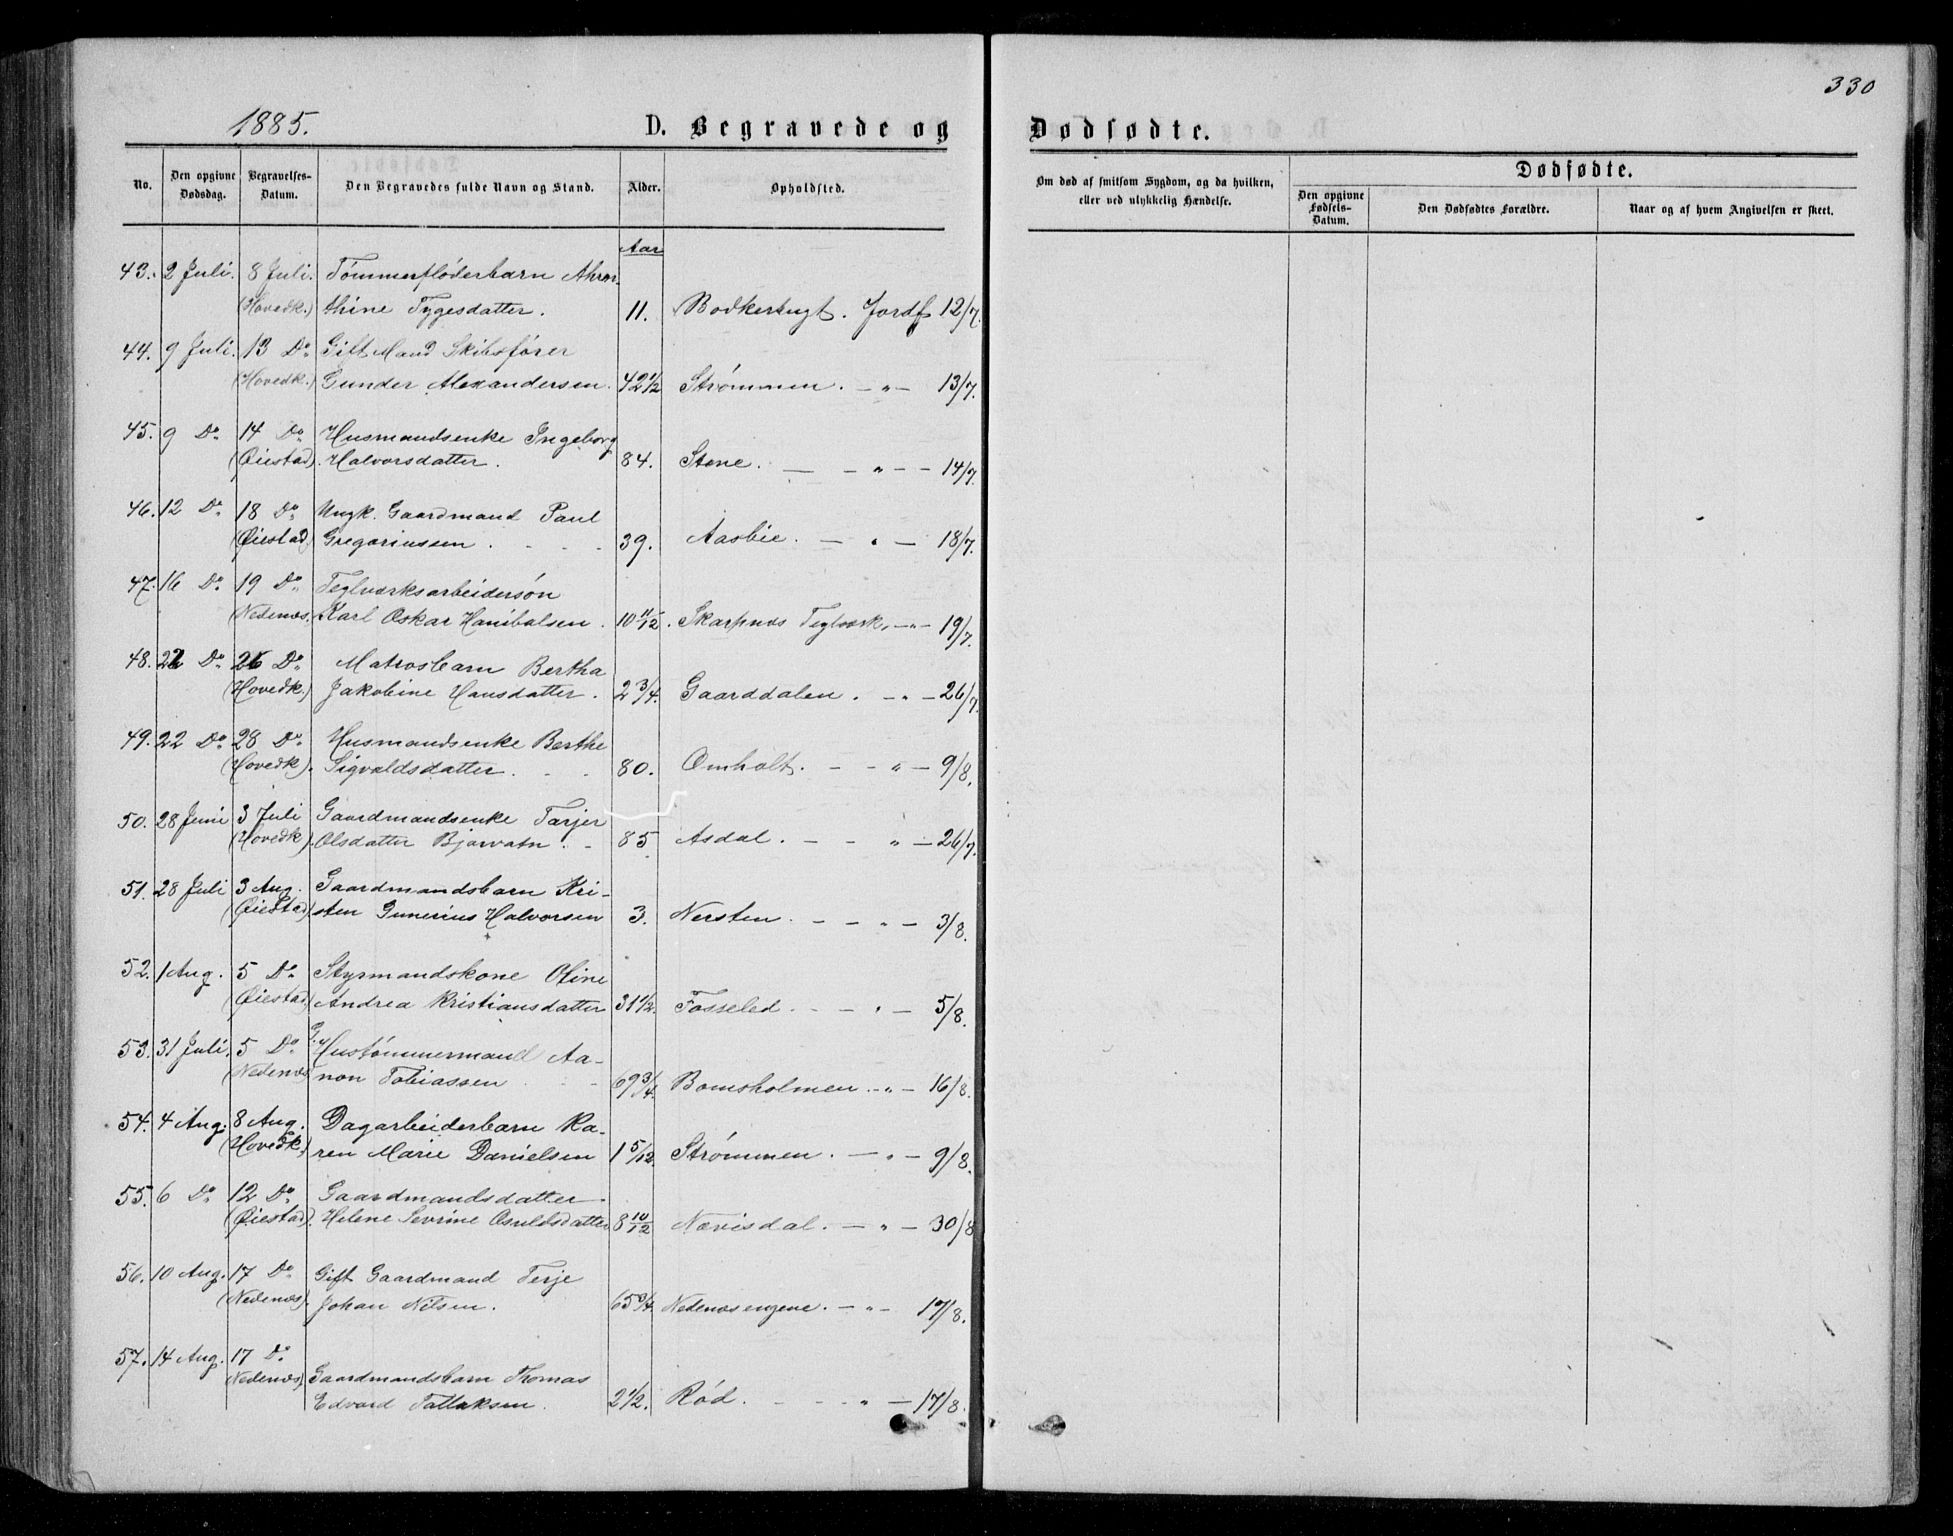 330
1885.
D. Begravede og
Dødsødte.
No.
Den opgivne Dødsdag.
Begravelses-Datum.
Den Begravedes fulde Navn og Stand.
Alder.
Opholdsted.
Om død af smitsom Sygdom, og da hvilken,
eller ved ulykkelig Hændelse.
Dødfødte.
Den opgivne Fødsels-Datum.
Den Dødfødtes Forældre.
Naar og af hvem Angivelsen er skeet.
Aar
43. 2 Juli. 8 Juli. Tømmerfløderbarn Ahren-
(Hovedk.) thine Tygesdatter. 11. Bodkerbugt. Jordf 12/7.
44. 9 Juli. 13 Do Gift Mand Skibsfører
(Hovedk.) Gunder Alexandersen. 42 1/2 Strømmen. — „ — 13/7.
45. 9 Do 14 Do Husmandsenke Ingeborg
(Øiestad). Halvorsdatter. 84. Stene. — — „ — 14/7.
46. 12 Do 18 Do Ungk. Gaardmand Paul
(Øiestad) Gregoriussen. 39. Aasbie. — „ — 18/7.
47. 16 Do 19 Do Teglværksarbeidersøn
(Nedenæs. Karl Oskar Hanibalsen. 10 11/12. Skarpnæs Teglværk, — „ — 19/7.
48. 22 Do 26 Do Matrosbarn Bertha
(Hovedk.) Jakobine Hansdatter. 2 3/4. Gaarddalen. — „ — 26/7.
49. 22 Do 28 Do Husmandsenke Berthe
(Hovedk). Sigvaldsdatter. 80. Omholt. — — „ — 9/8.
50. 28 Juni 3 Juli Gaardmandsenke Tarjer
(Hovedk). Olsdatter Bjorvatn. 85 Asdal. — — „ — 26/7.
51. 28 Juli 3 Aug. Gaardmandsbarn Kri-
(Øiestad) sten Gunerius Halvorsen 3. Nersten. — — „ — 3/8.
52. 1 Aug. 5 Do Styrmandskone Oline
(Øiestad.) Andrea Kristiansdatter 31 1/2. Fosseled. — — „ — 5/8.
53. 31 Juli. 5 Do G. Hustømmermand Aa-
(Nedenæs) non Tobiassen 69 3/4. Bomsholmen. — „ — 16/8.
54. 4 Aug. 8 Aug. Dagarbeiderbarn Ka-
(Hovedk.) ren Marie Danielsen 1 5/12. Strømmen. — „ — 9/8.
55. 6 Do 12 Do Gaardmandsdatter
(Øiestad). Helene Sevrine Osuldsdatter 8 10/12 Nævisdal. — „ — 30/8
56. 10 Aug. 17 Do Gift Gaardmand Terje
(Nedenæs). Johan Nilsen. 65 3/4. Nedenæsengene. — „ — 17/8.
57. 14 Aug. 17 Do
Nedenæs) Gaardmandsbarn Thomas
Edvard Tallaksen. 2 1/2. Rød. — — „ — 17/8.